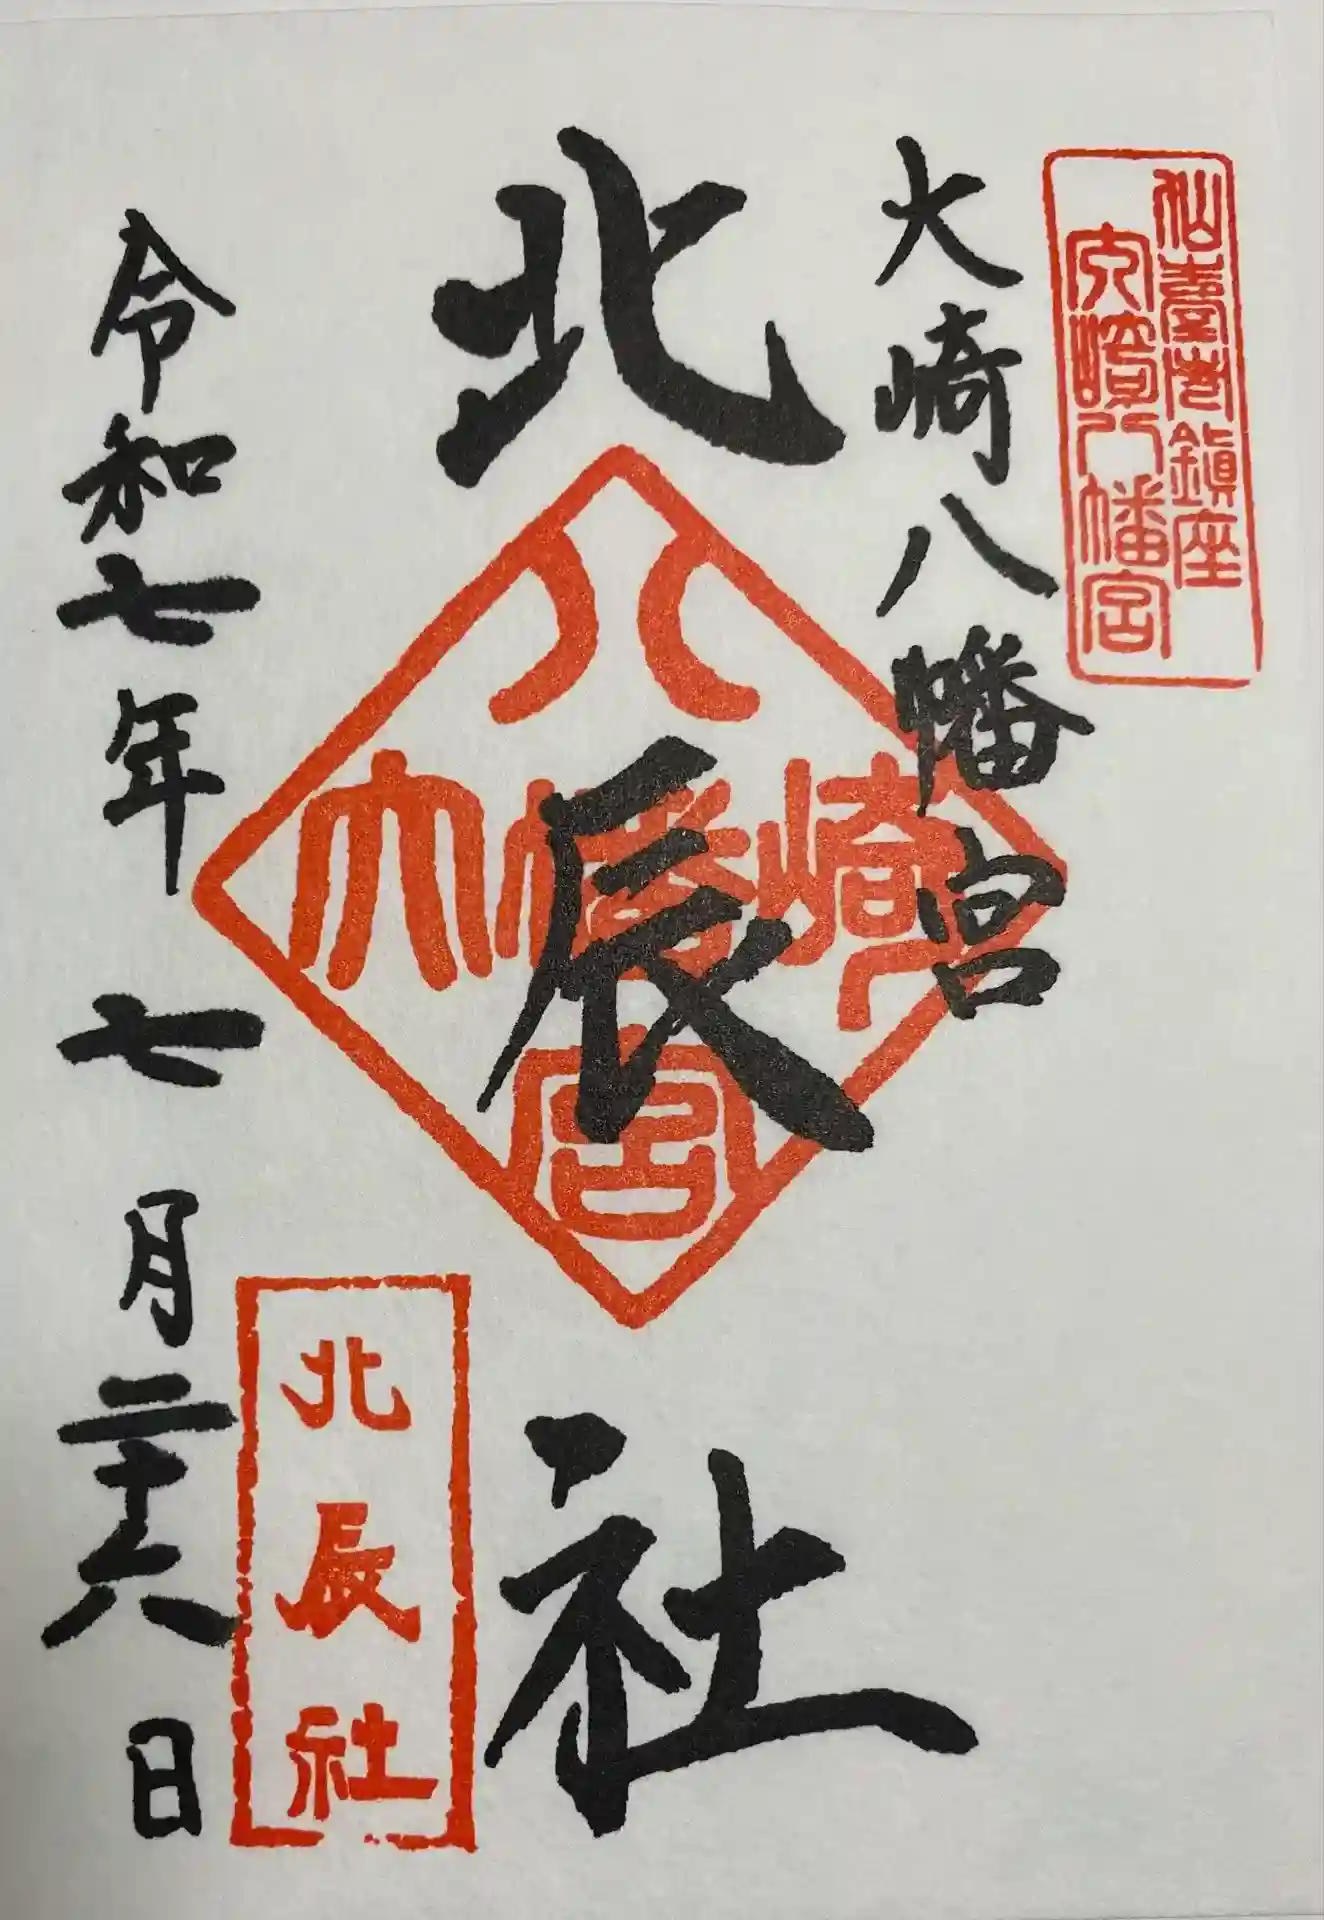 仙臺老鎮座
大崎八幡宮
大崎八幡宮
北辰社
八
大幡崎
宮
北辰社
令和七年七月二十六日